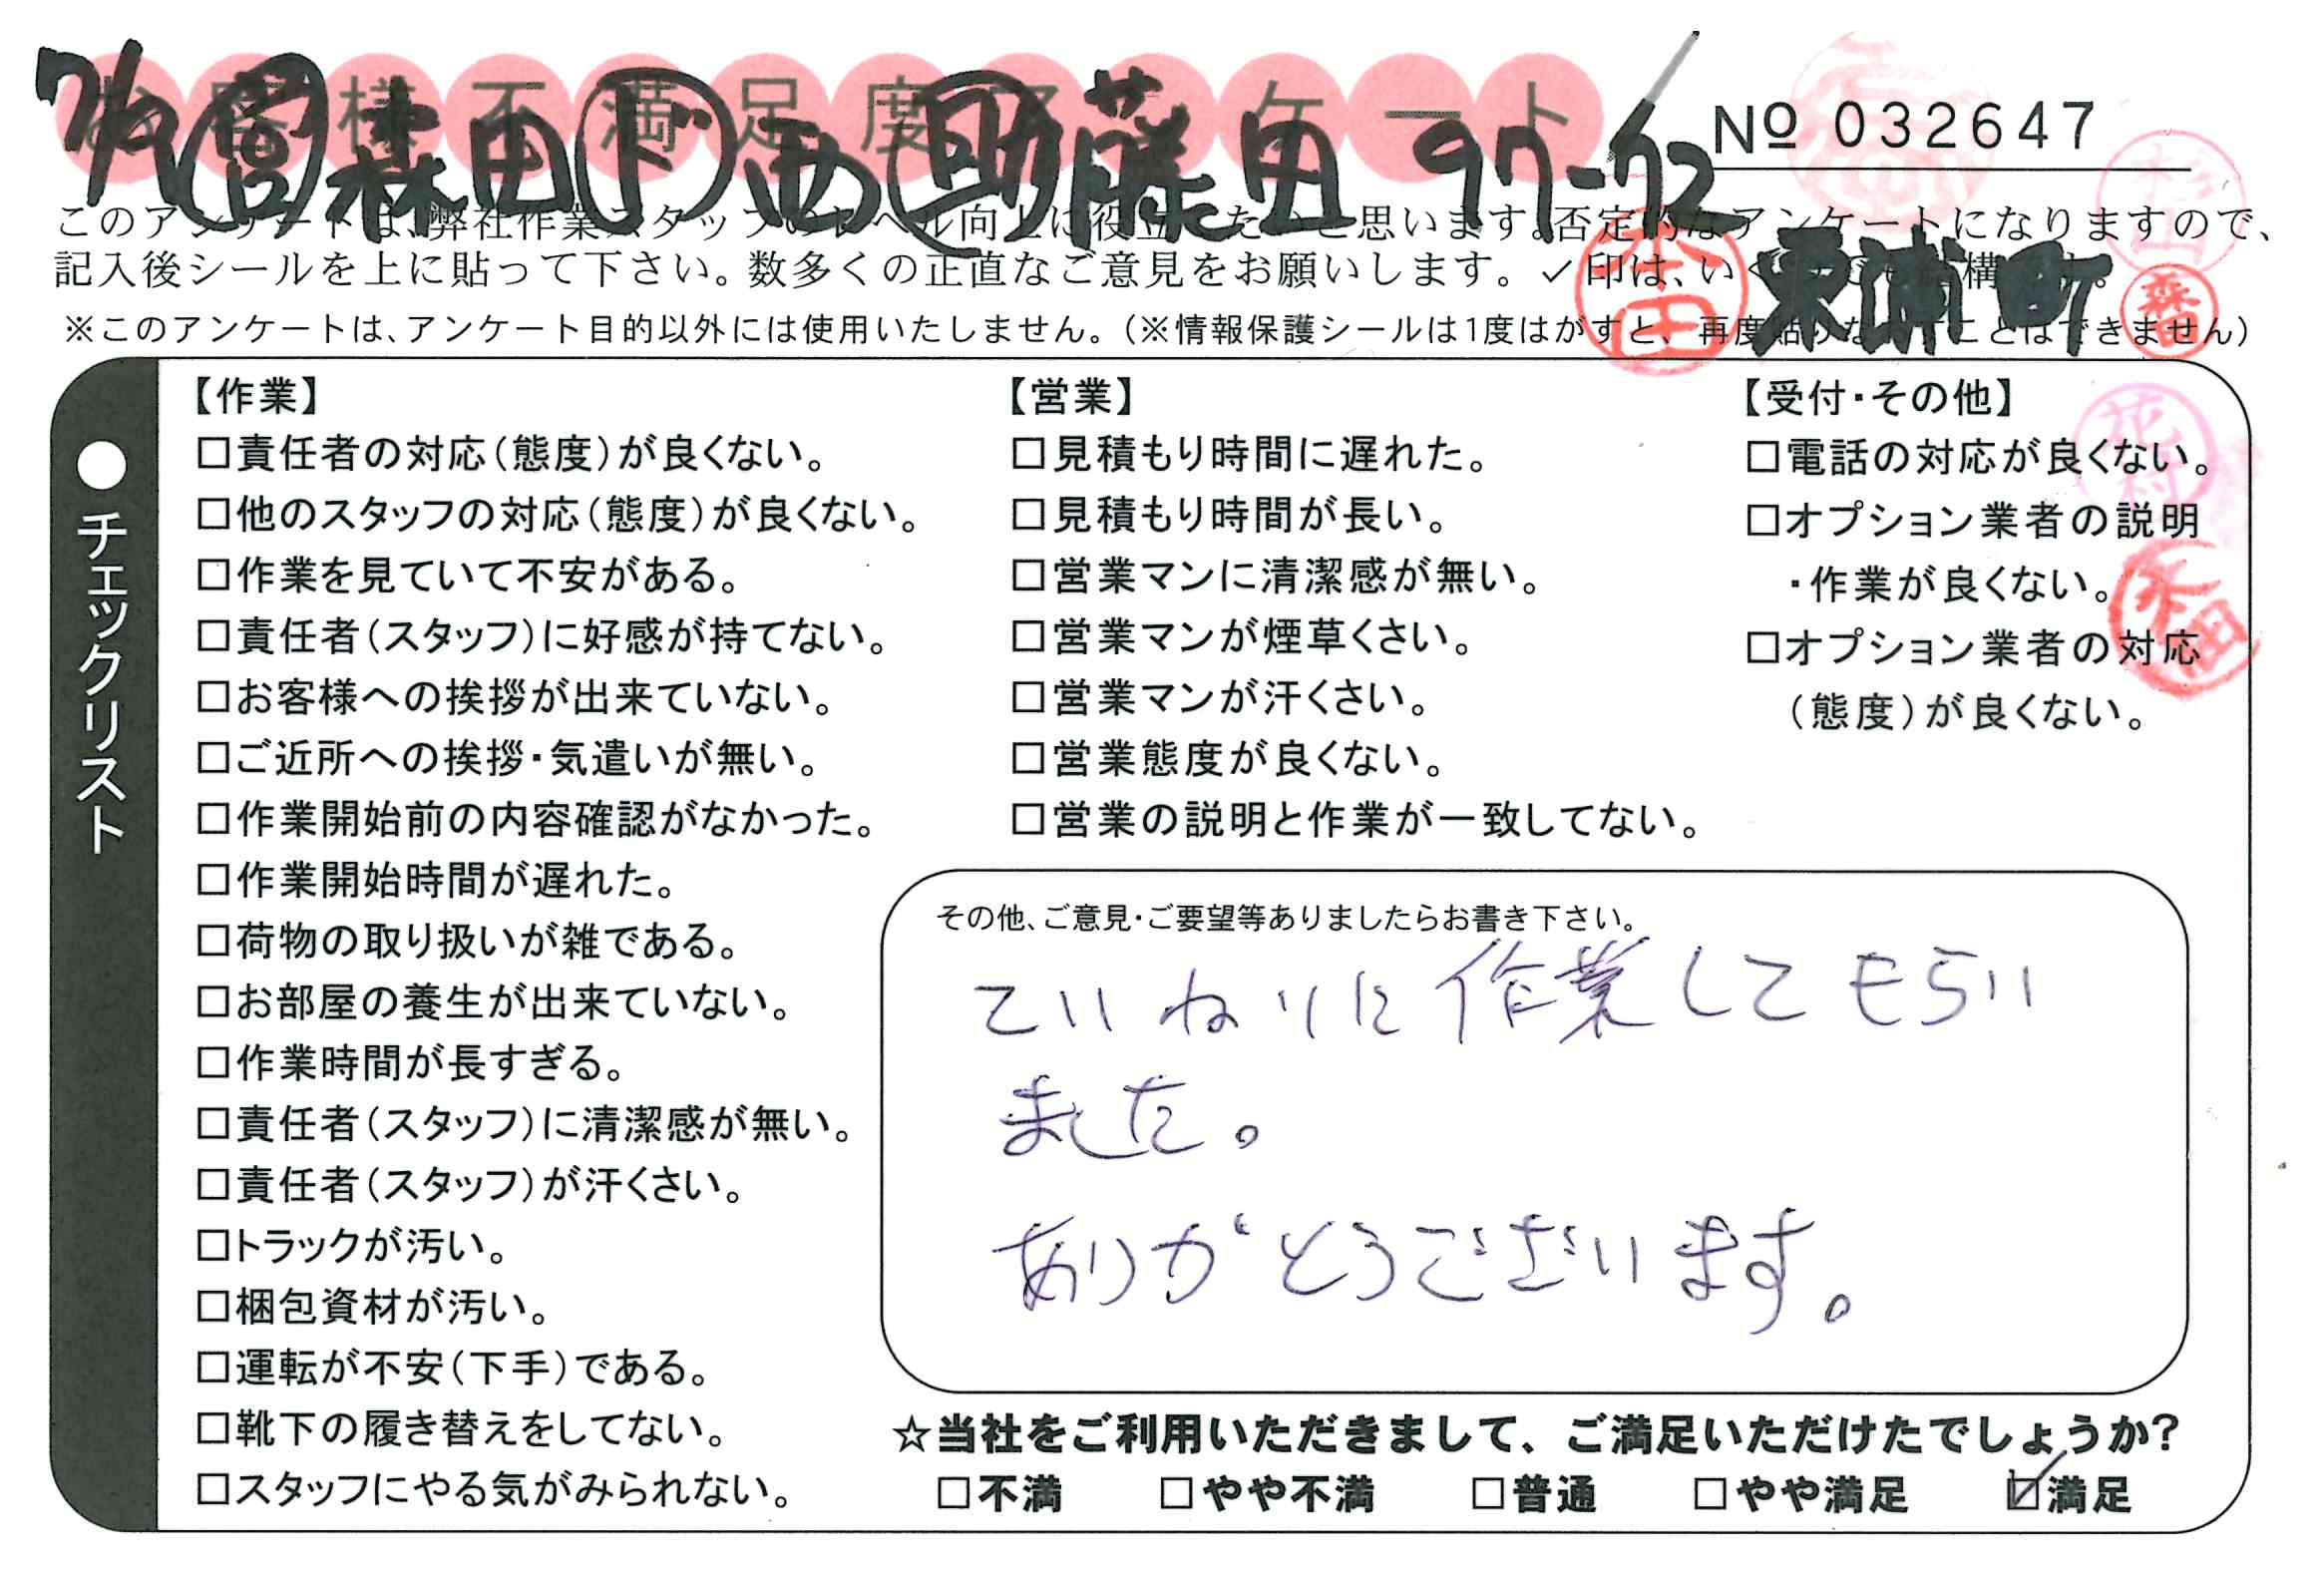 お客様不満足度アンケート
7/9 営 森田 ド 西 助 藤田 97-72
№ 032647
東浦町
このアンケートは、弊社作業スタッフのレベル向上に役立てたいと思います。否定的なアンケートになりますので、
記入後シールを上に貼って下さい。数多くの正直なご意見をお願いします。✓印は、いくつでも結構です。
※このアンケートは、アンケート目的以外には使用いたしません。(※情報保護シールは1度はがすと、再度貼りなおすことはできません)
●チェックリスト
【作業】
□責任者の対応(態度)が良くない。
□他のスタッフの対応(態度)が良くない。
□作業を見ていて不安がある。
□責任者(スタッフ)に好感が持てない。
□お客様への挨拶が出来ていない。
□ご近所への挨拶・気遣いが無い。
□作業開始前の内容確認がなかった。
□作業開始時間が遅れた。
□荷物の取り扱いが雑である。
□お部屋の養生が出来ていない。
□作業時間が長すぎる。
□責任者(スタッフ)に清潔感が無い。
□責任者(スタッフ)が汗くさい。
□トラックが汚い。
□梱包資材が汚い。
□運転が不安(下手)である。
□靴下の履き替えをしてない。
□スタッフにやる気がみられない。
【営業】
□見積もり時間に遅れた。
□見積もり時間が長い。
□営業マンに清潔感が無い。
□営業マンが煙草くさい。
□営業マンが汗くさい。
□営業態度が良くない。
□営業の説明と作業が一致してない。
【受付・その他】
□電話の対応が良くない。
□オプション業者の説明
・作業が良くない。
□オプション業者の対応
(態度)が良くない。
その他、ご意見・ご要望等ありましたらお書き下さい。
ていねいに作業してもらい
ました。
ありがとうございます。
☆当社をご利用いただきまして、ご満足いただけたでしょうか?
□不満 □やや不満 □普通 □やや満足 ☑満足